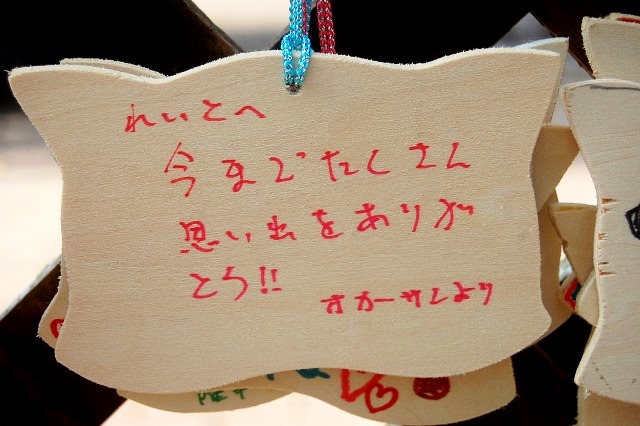 れいとへ
今までたくさん
思い出をありが
とう!!
オカーサンより